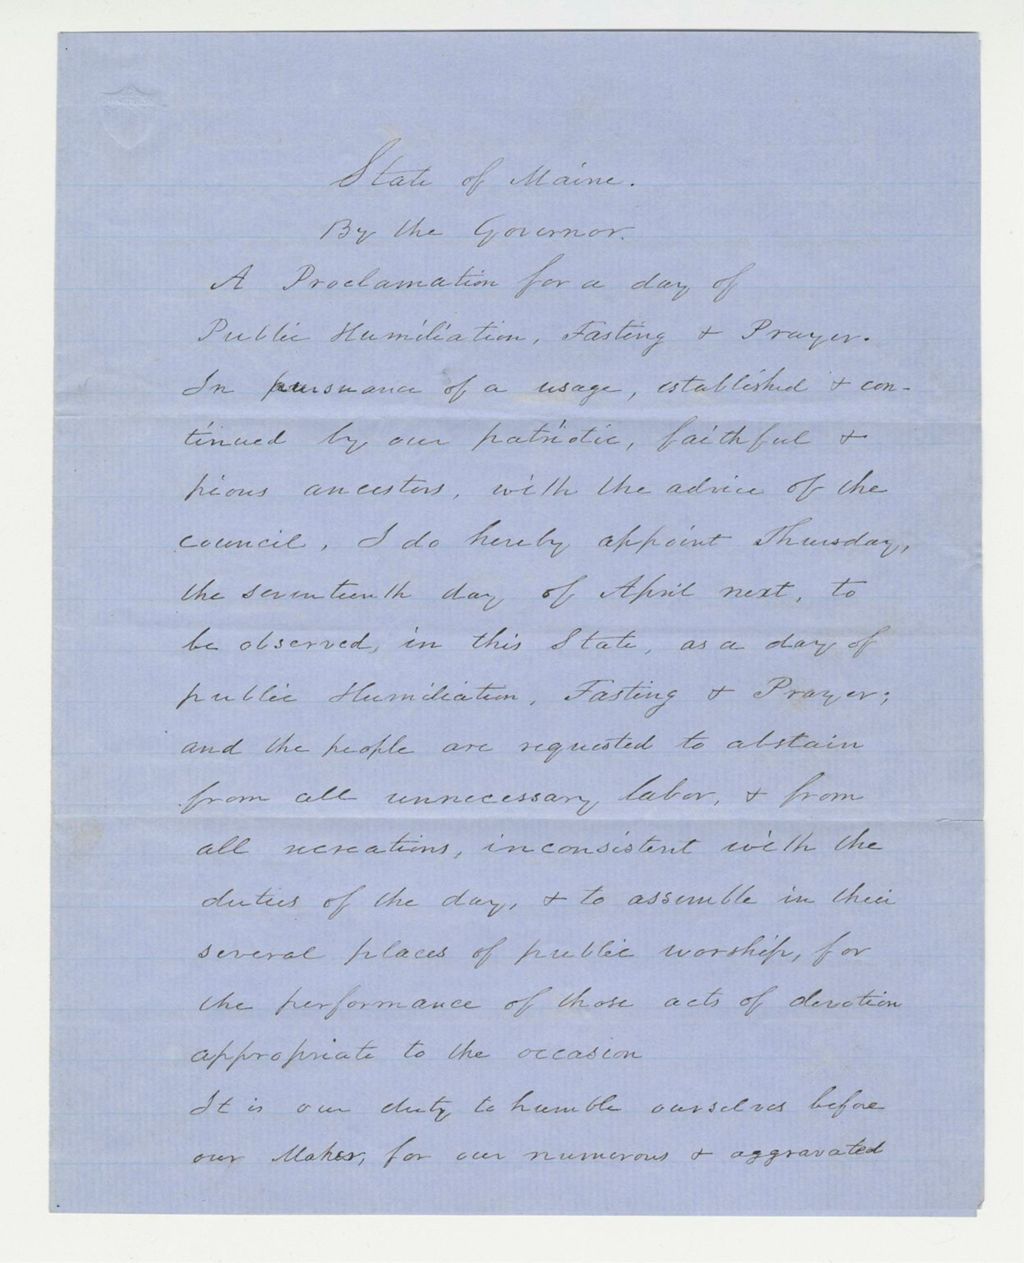 State of Maine.
By the Governor.
A Proclamation for a day of
Public Humiliation, Fasting & Prayer.
In pursuance of a usage, established & con-
tinued by our patriotic, faithful &
pious ancestors, with the advice of the
council, I do hereby appoint Thursday,
the seventeenth day of April next, to
be observed, in this State, as a day of
public Humiliation, Fasting & Prayer;
and the people are requested to abstain
from all unnecessary labor, & from
all recreations, inconsistent with the
duties of the day, & to assemble in their
several places of public worship, for
the performance of those acts of devotion
appropriate to the occasion
It is our duty to humble ourselves before
our Maker, for our numerous & aggravated